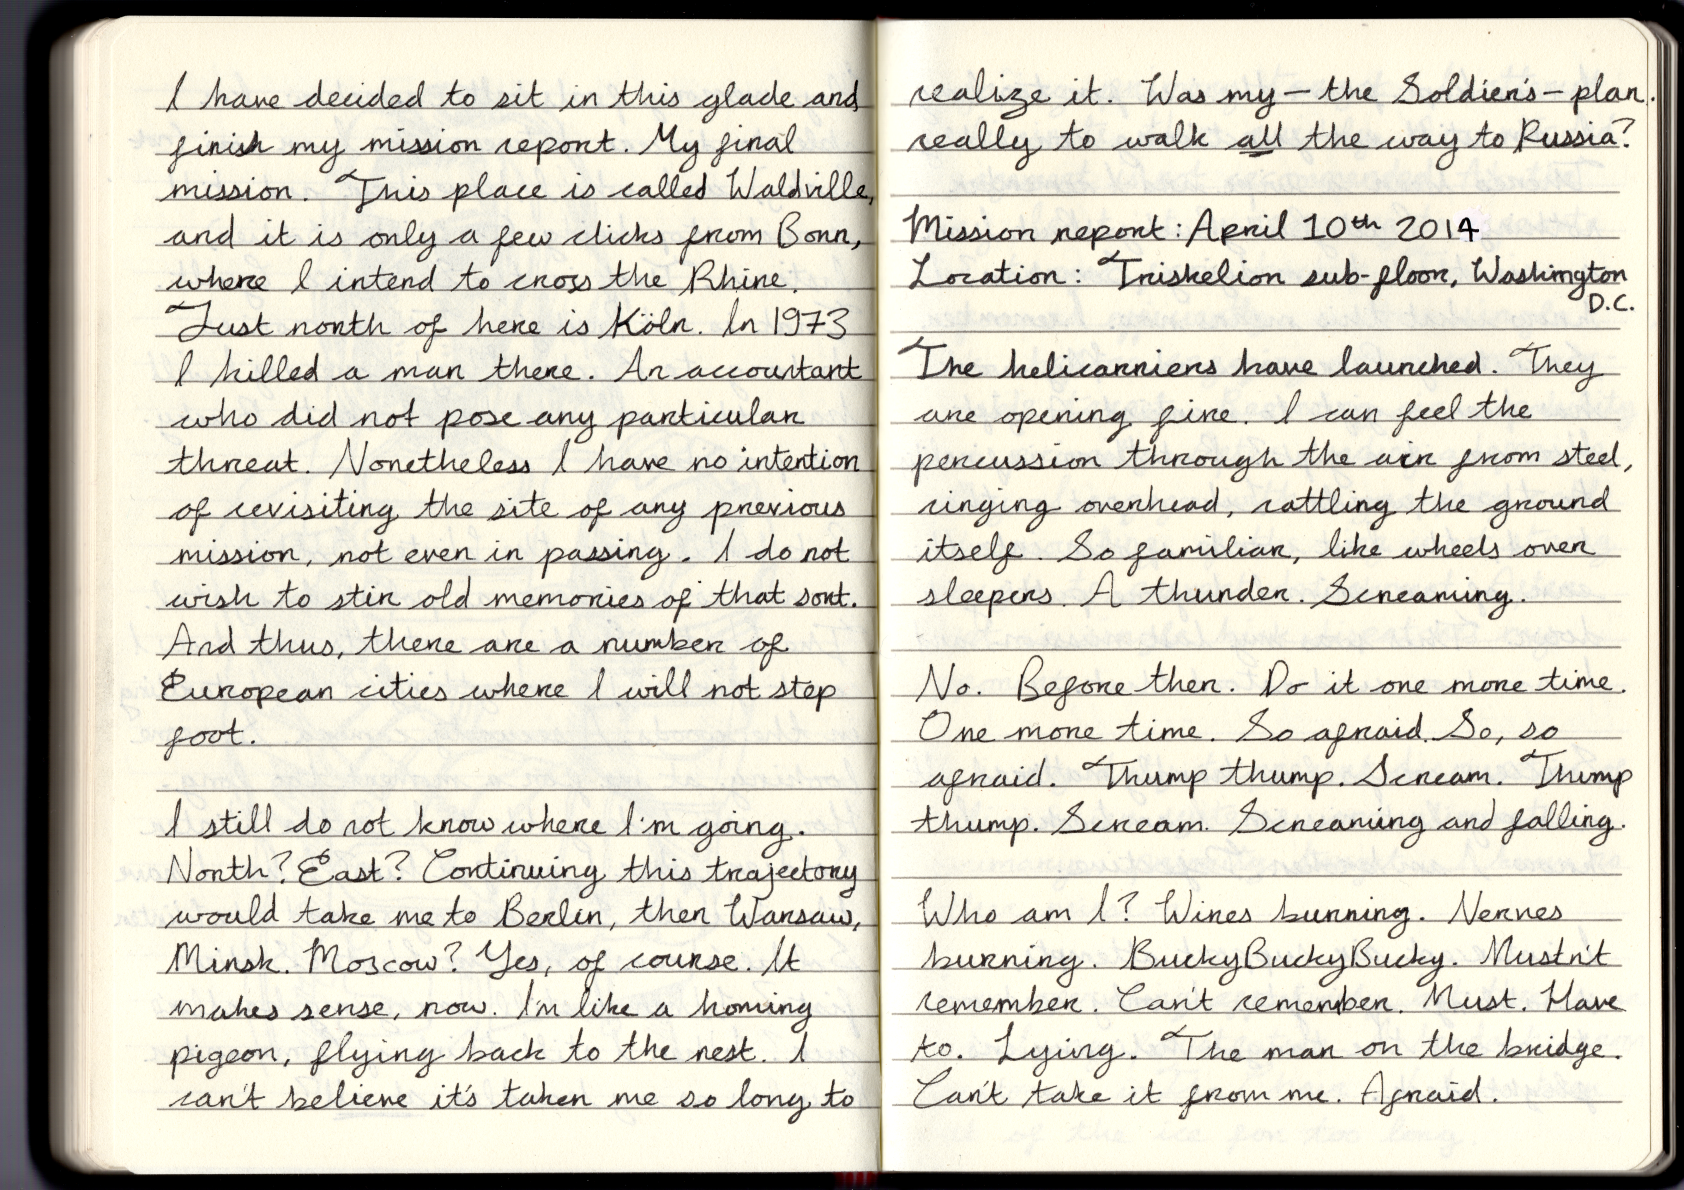 I have decided to sit in this glade and
finish my mission report. My final
mission. This place is called Waldville,
and it is only a few clicks from Bonn,
where I intend to cross the Rhine.
Just north of here is Köln. In 1973
I killed a man there. An accountant
who did not pose any particular
threat. Nonetheless I have no intention
of revisiting the site of any previous
mission, not even in passing. I do not
wish to stir old memories of that sort.
And thus, there are a number of
European cities where I will not step
foot.
I still do not know where I'm going.
North? East? Continuing this trajectory
would take me to Berlin, then Warsaw,
Minsk. Moscow? Yes, of course. It
makes sense, now. I'm like a homing
pigeon, flying back to the nest. I
can't believe it's taken me so long to
realize it. Was my – the Soldier's – plan
really to walk all the way to Russia?
Mission report: April 10th 2014
Location: Triskelion sub-floor, Washington
D.C.
The helicarriers have launched. They
are opening fire. I can feel the
percussion through the air from steel,
ringing overhead, rattling the ground
itself. So familiar, like wheels over
sleepers. A thunder. Screaming.
No. Before then. Do it one more time.
One more time. So afraid. So, so
afraid. Thump thump. Scream. Thump
thump. Scream. Screaming and falling.
Who am I? Wires burning. Nerves
burning. BuckyBuckyBucky. Mustn't
remember. Can't remember. Must. Have
to. Lying. The man on the bridge.
Can't take it from me. Afraid.